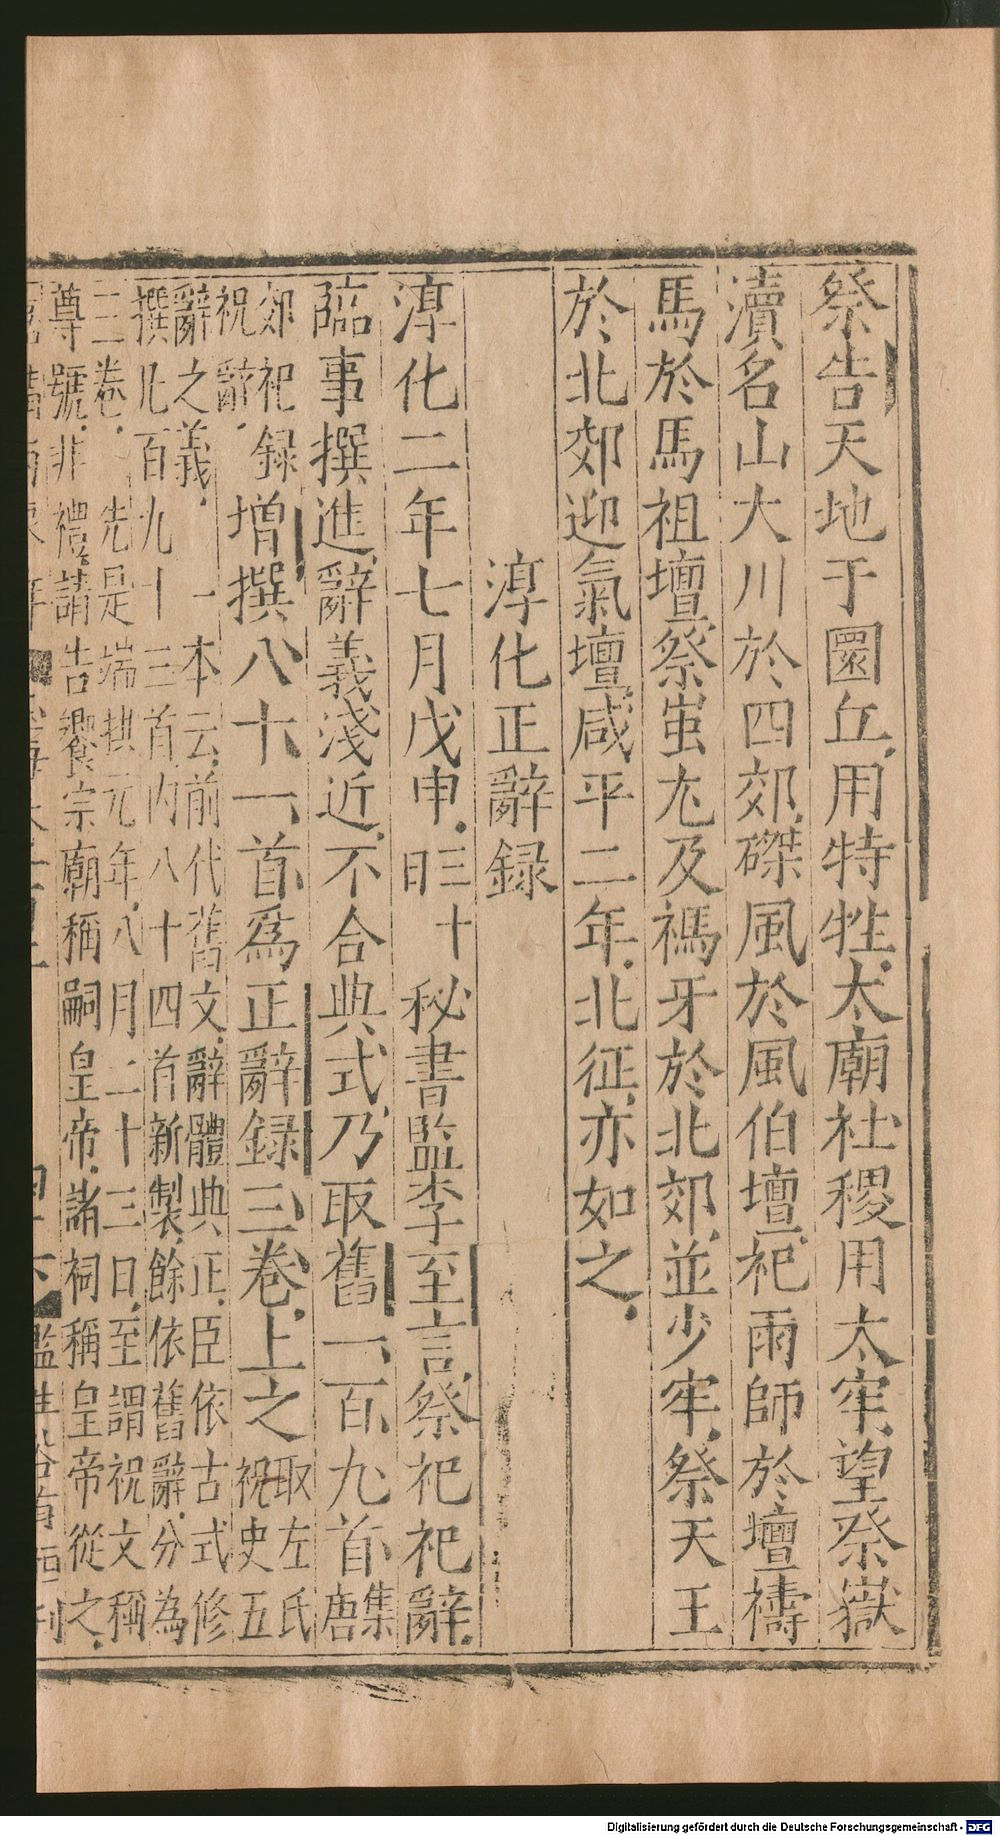 祭告天地于圜丘用特牲太廟社稷用太牢望祭嶽
瀆名山大川於四郊磔風於風伯壇祀雨師於壇禱
馬於馬祖壇祭蚩尤及禡牙於北郊並少牢祭天王
於北郊迎氣壇咸平二年北征亦如之
淳化正辭録
淳化二年七月戊申三十日秘書監李至言祭祀祀辭
臨事撰進辭義淺近不合典式乃取舊一百九首唐集
郊祀録
祝辭
增撰八十一首爲正辭録三卷上之取左氏
祝史五
辭之義一本云前代舊文辭體典正臣依古式修
撰凡百九十三首内八十四首新製餘依舊辭分為
三卷先是端拱元年八月二十三日至謂祝文稱
尊號非禮請告饗宗廟稱嗣皇帝諸祠稱皇帝從之
Digitalisierung gefördert durch die Deutsche Forschungsgemeinschaft - DFG